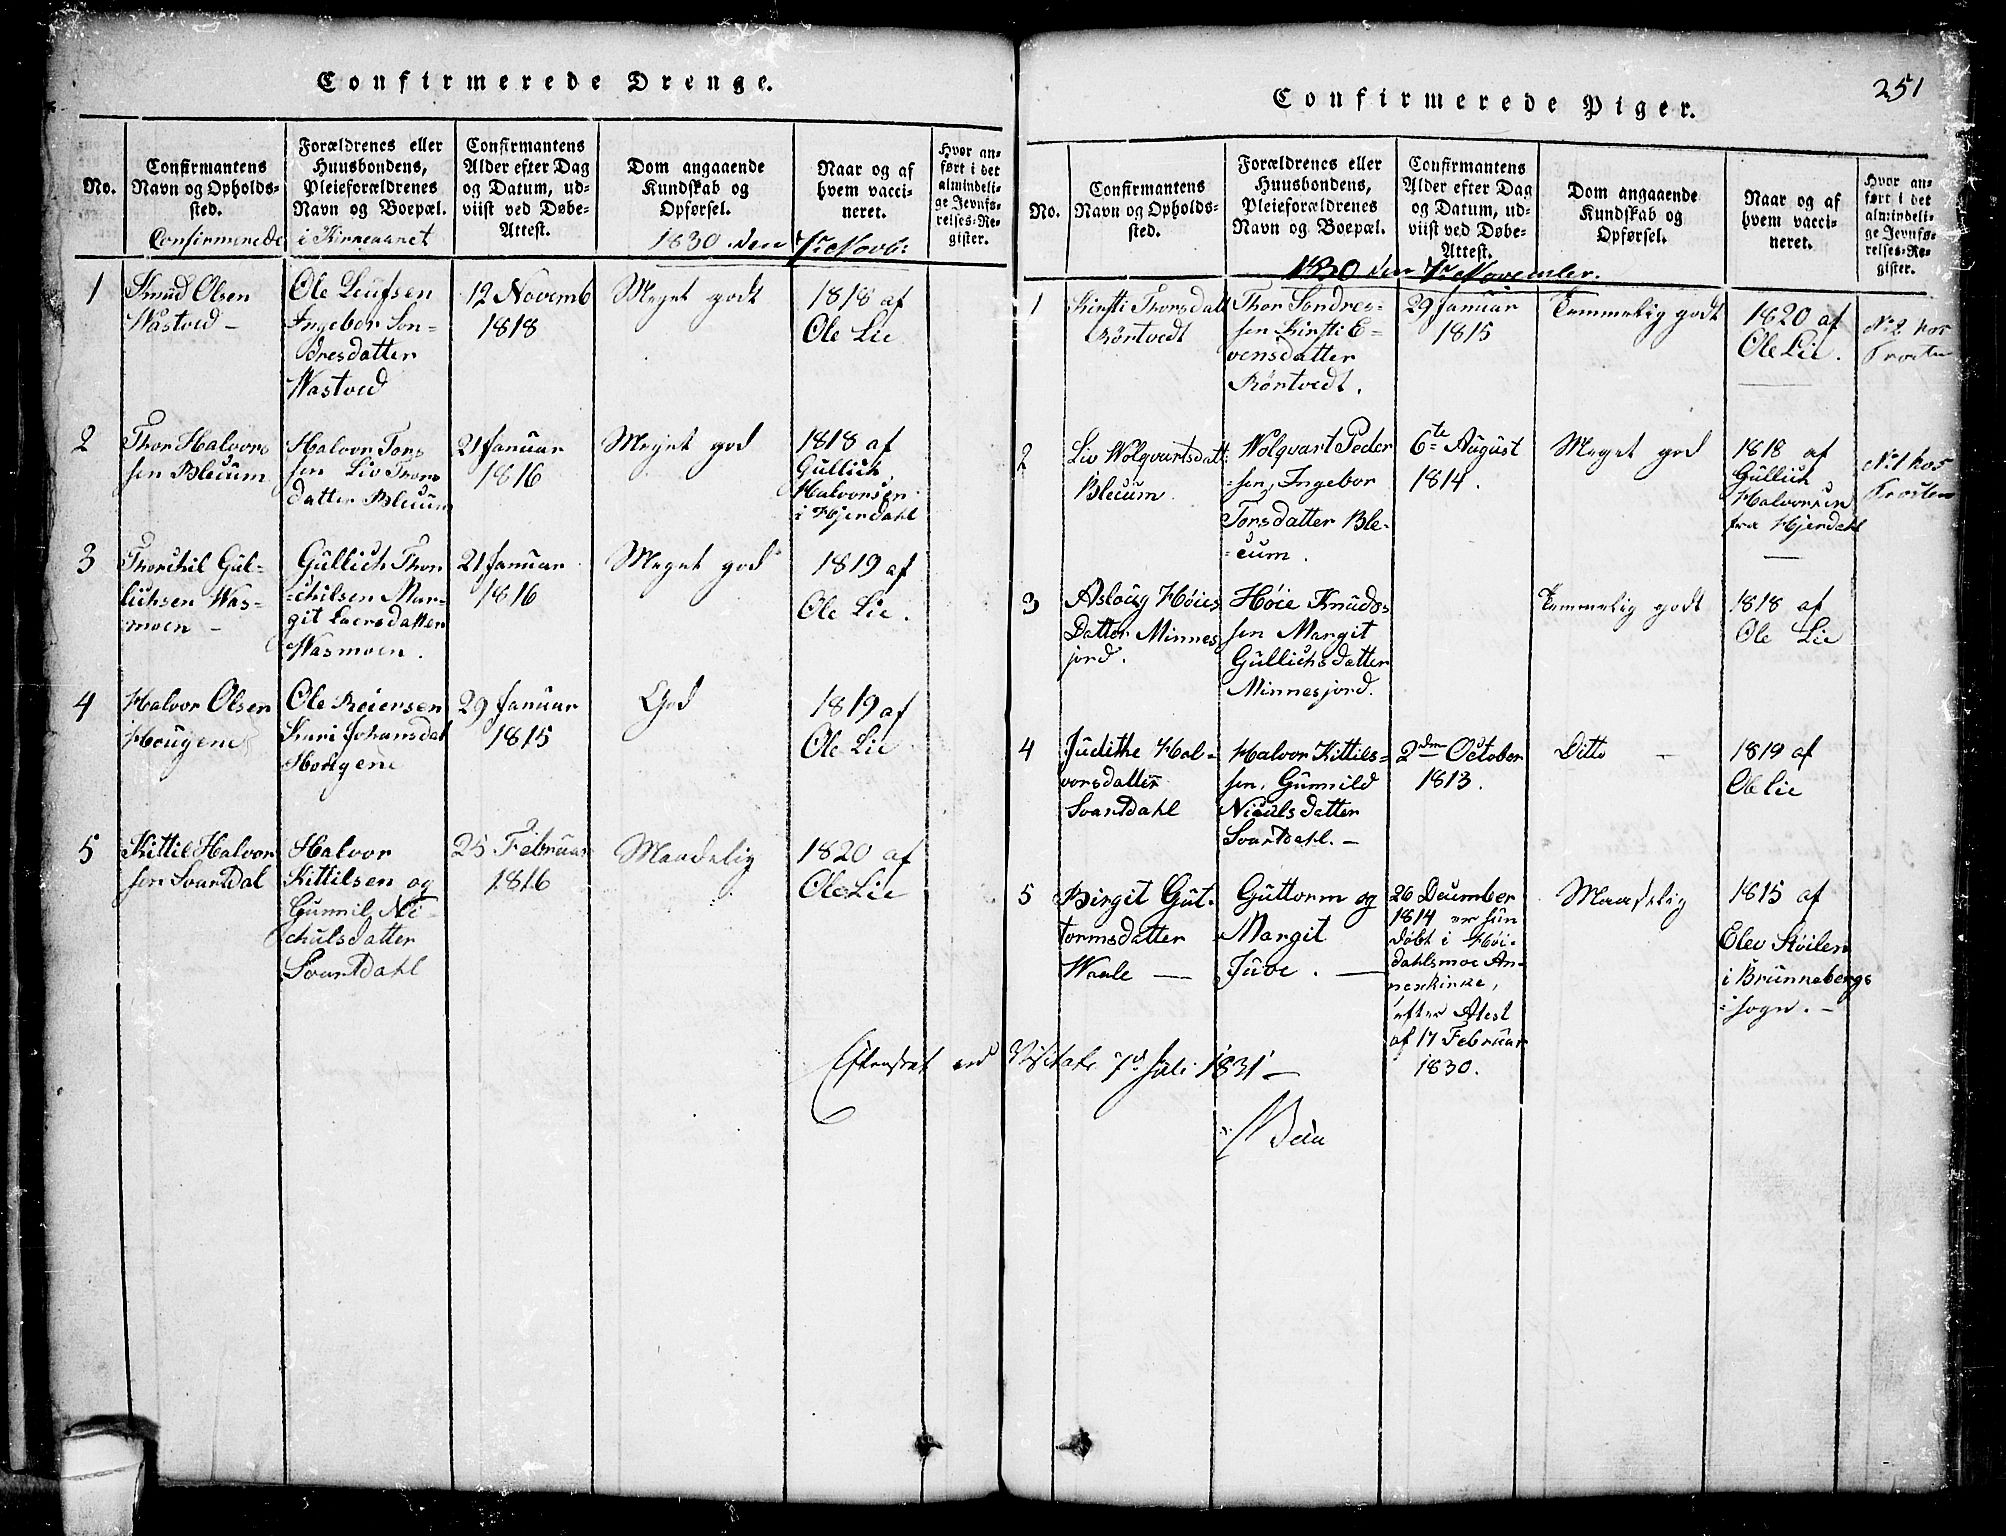 Confirmerede Drenge.
No.
Confirmantens
Navn og Opholds-
sted.
Forældrenes eller
Huusbondens,
Pleieforældrenes
Navn og Boepæl.
Confirmantens
Alder efter Dag
og Datum, ud-
viist ved Døbe-
Attest.
Dom angaaende
Kundskab og
Opførsel.
Naar og af
hvem vacci-
neret.
Hvor an-
ført i det
almindeli-
ge Jevnfø-
relses-Re-
gister.
Confirmerede i Kirkeaaret 1830 den 7de Novb:
1
Knud Olsen
Wastved –
Ole Leufsen
Ingebor Son-
dresdatter
Wastved
12 Novemb
1818
Meget godt
1818 af
Ole Lie
2
Thor Halvors
sen Blecum
Halvor Tors
sen Liv Thors
datter Blecum
21 Januar
1816
Meget god
1818 af
Gullich
Halvorsen
i Hjerdahl
3
Thorchil Gul-
lichsen Was-
moen –
Gullich Thor
-chilsen Mar-
git Laersdatter
Wasmoen.
21 Januar
1816
Meget god
1819 af
Ole Lie.
4
Halvor Olsen
Hougene
Ole Reiersen
Kari Johansdat
Hougene
29 Januar
1815
God
1819 af
Ole Lie
5
Kittil Halvor
sen Svartdal
Halvor
Kittilsen og
Gunnil Ni-
chulsdatter
Svartdahl
25 Februar
1816
Maadelig
1820 af
Ole Lie
251
Confirmerede Piger.
No.
Confirmantens
Navn og Opholds-
sted.
Forældrenes eller
Huusbondens,
Pleieforældrenes
Navn og Boepæl.
Confirmantens
Alder efter Dag
og Datum, ud-
viist ved Døbe-
Attest.
Dom angaaende
Kundskab og
Opførsel.
Naar og af
hvem vacci-
neret.
Hvor an-
ført i det
almindeli-
ge Jevnfø-
relses-Re-
gister.
1830 den 7de November.
1
Kirsti Thorsdatt
Rørtvedt
Thor Sondres-
sen Kirsti E-
vensdatter
Rørtvedt.
29 Januar
1815
Temmelig godt
1820 af
Ole Lie.
No 2 hos
2
Liv Wolqvartsdatt:
Blecum
Wolqvart Peder
-sen, Ingebor
Torsdatter Ble-
-cum.
6te August
1814.
Meget god
1818 af
Gullich
Halvorsen
fra Hjerdahl
No 1 hos
3
Asloug Høies
Datter Minnes
jord.
Høie Knuds-
sen Margit
Gullichsdatter
Minnesjord.
Temmelig godt
1818 af
Ole Lie
4
Judithe Hal-
vorsdatter
Svartdahl
Halvor Kittils-
sen, Gunnild
Niculsdatter
Svartdahl. –
2den October
1813.
Ditto –
1819 af
Ole Lie
5
Birgit Gut-
tormsdatter
Waale –
Guttorm og
Margit
Juve. –
26 December
1814 er hun
døbt i Høi-
dahlsmoe An-
nexkirke,
efter Atest
af 17 Februar
1830.
Maadelig
1815 af
Elev Støilen
i Brunneberg
-sogn. –
Efterseet ved Visitats 7d Juli 1831 –